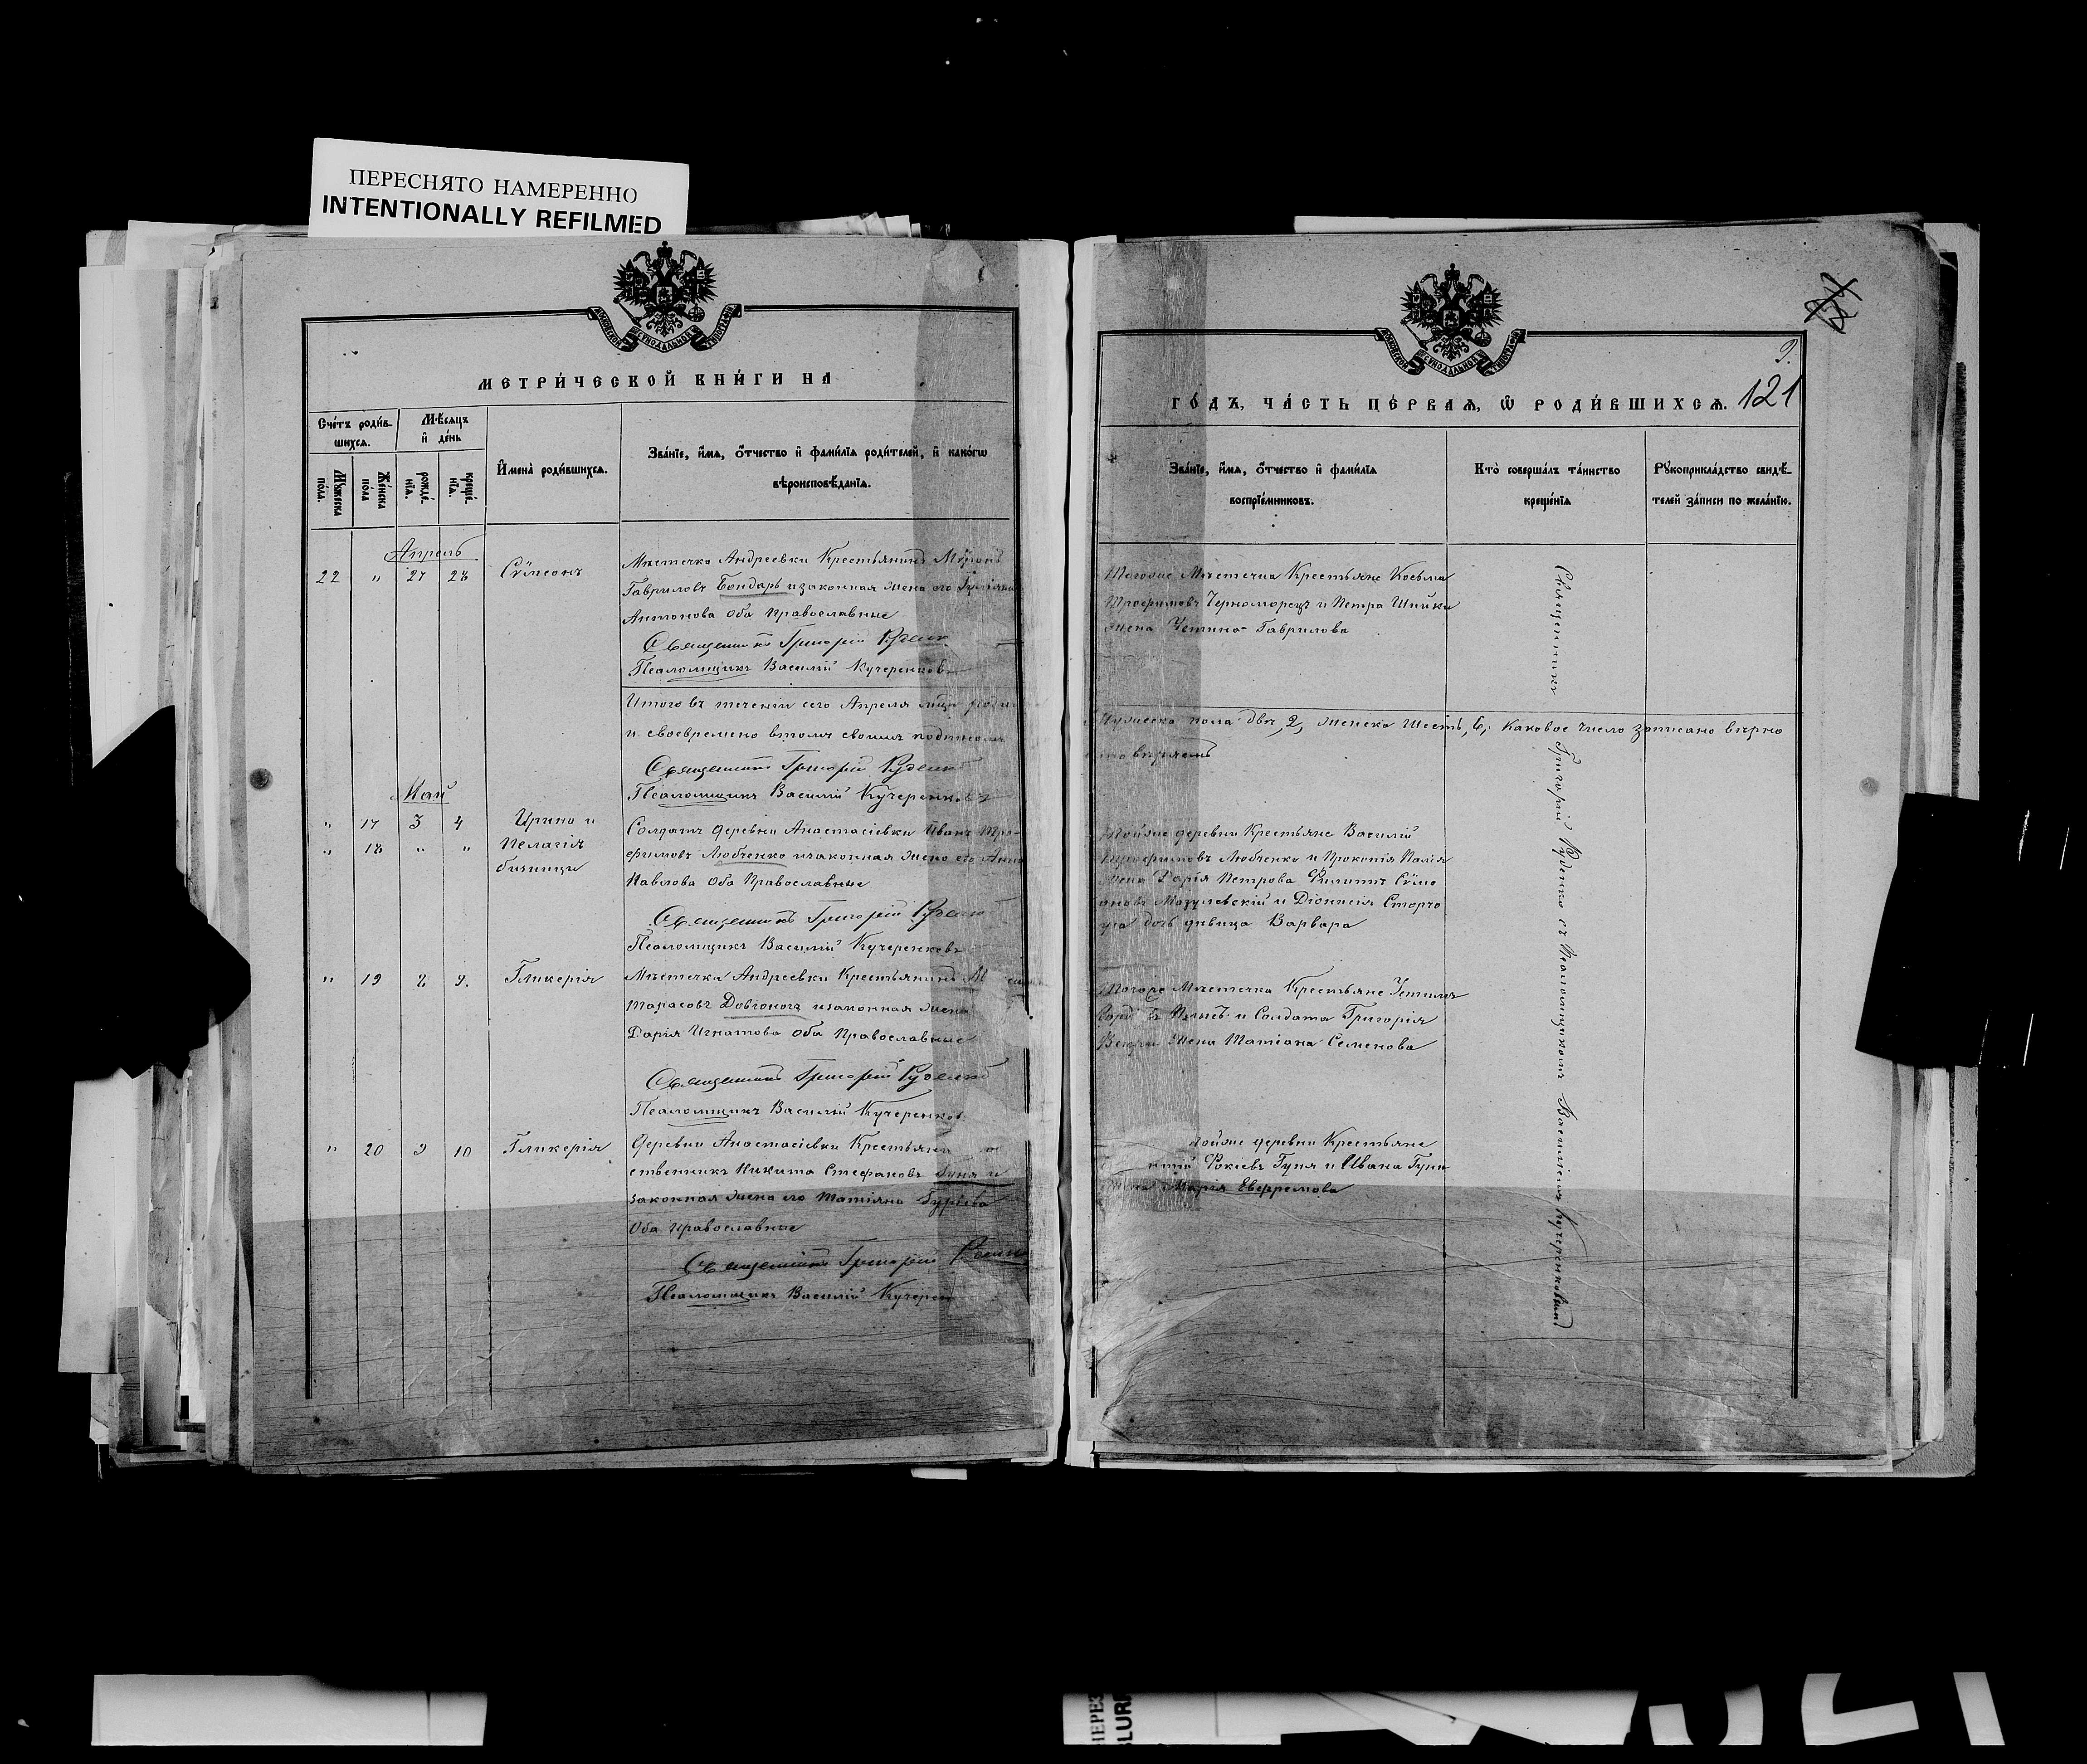 ПЕРЕСНЯТО НАМЕРЕННО
INTENTIONALLY REFILMED
МЕТРИ́ЧЕСКОЙ КНИ́ГИ НА
Сче́тъ роди́в-
шихсѧ.
Мѣ́сѧцъ
и҆ де́нь
Мꙋ́жеска
по́ла.
Же́нска
по́ла
рожде́-
нїѧ.
креще́-
нїѧ.
И҆мена̀ роди́вшихсѧ.
Зва́нїе, и҆́мѧ, ѻ҆́тчество и҆ фами́лїѧ роди́телей, и҆ како́гѡ
вѣроисповѣ́данїѧ.
Апрель
22 " 27 28 Сѵмеонъ
Мѣстечка Андреевки Крестьянинъ Мѵронъ
Гавриловъ Бондарь и законная жена его
Антонова оба Православные
Священникъ Григорій
Псаломщикъ Василій Кучеренковъ
Итого въ теченіи сего Апреля
и своевремено въ томъ своимъ подписомъ
Священникъ Григорій
Псаломщикъ Василій Кучеренковъ
Май
" 17 3 4 Ирина и
" 18 " " Пелагія
близнецы
Солдатъ деревни Анастасіевки Иванъ Тро-
фимовъ Любченко и законная жена его Анна
Павлова Оба Православные
Священникъ Григорій
Псаломщикъ Василій Кучеренковъ
" 19 8 9. Гликерія
Мѣстечка Андреевки Крестьянинъ
Тарасовъ Довгоногъ и законная жена
Дарія Игнатова Оба Православные
Священникъ Григорій
Псаломщикъ Василій Кучеренковъ
" 20 9 10 Гликерія
Деревни Анастасіевки Крестьянинъ
ственникъ Никита Стефановъ Гуня и
законная жена его Татіана Гурьева
Оба Православные
Священникъ Григорій
Псаломщикъ Василій Кучерен
9.
121
ГО́ДЪ, ЧА́СТЬ ПЕ́РВАѦ, Ѡ҆ РОДИ́ВШИХСѦ.
Зва́нїе, и҆́мѧ, ѻ҆́тчество и҆ фами́лїѧ
воспрїе́мниковъ.
Кто̀ соверша́лъ та́инство
креще́нїѧ
Рꙋкоприкла́дство свидѣ́-
телей за́писи по жела́нїю.
Тогоже Мѣстечка Крестьяне Косьма
Трофимовъ Черноморецъ и Петра Шпики
жена Устина Гаврилова
Мужеска пола двѣ, 2, женска шесть, 6, каковое число записано вѣрно
Тойже деревни Крестьяне Василій
Трофимовъ Любченко и Прокопія Палія
жена Дарія Петрова Филиппъ Сѵме
оновъ Мазулевскій и Діонисія Сторчо
уса дочь дѣвица Варвара
Тогоже Мѣстечка Крестьяне Устимъ
и Солдата Григорія
жена Татіана Семенова
Тойже деревни Крестьяне
Фокіевъ Гуня и Ивана Гуни
жена Марія Евфремова
Священникъ Григорій Руденко съ Псаломщикомъ Василіемъ Кучеренковымъ